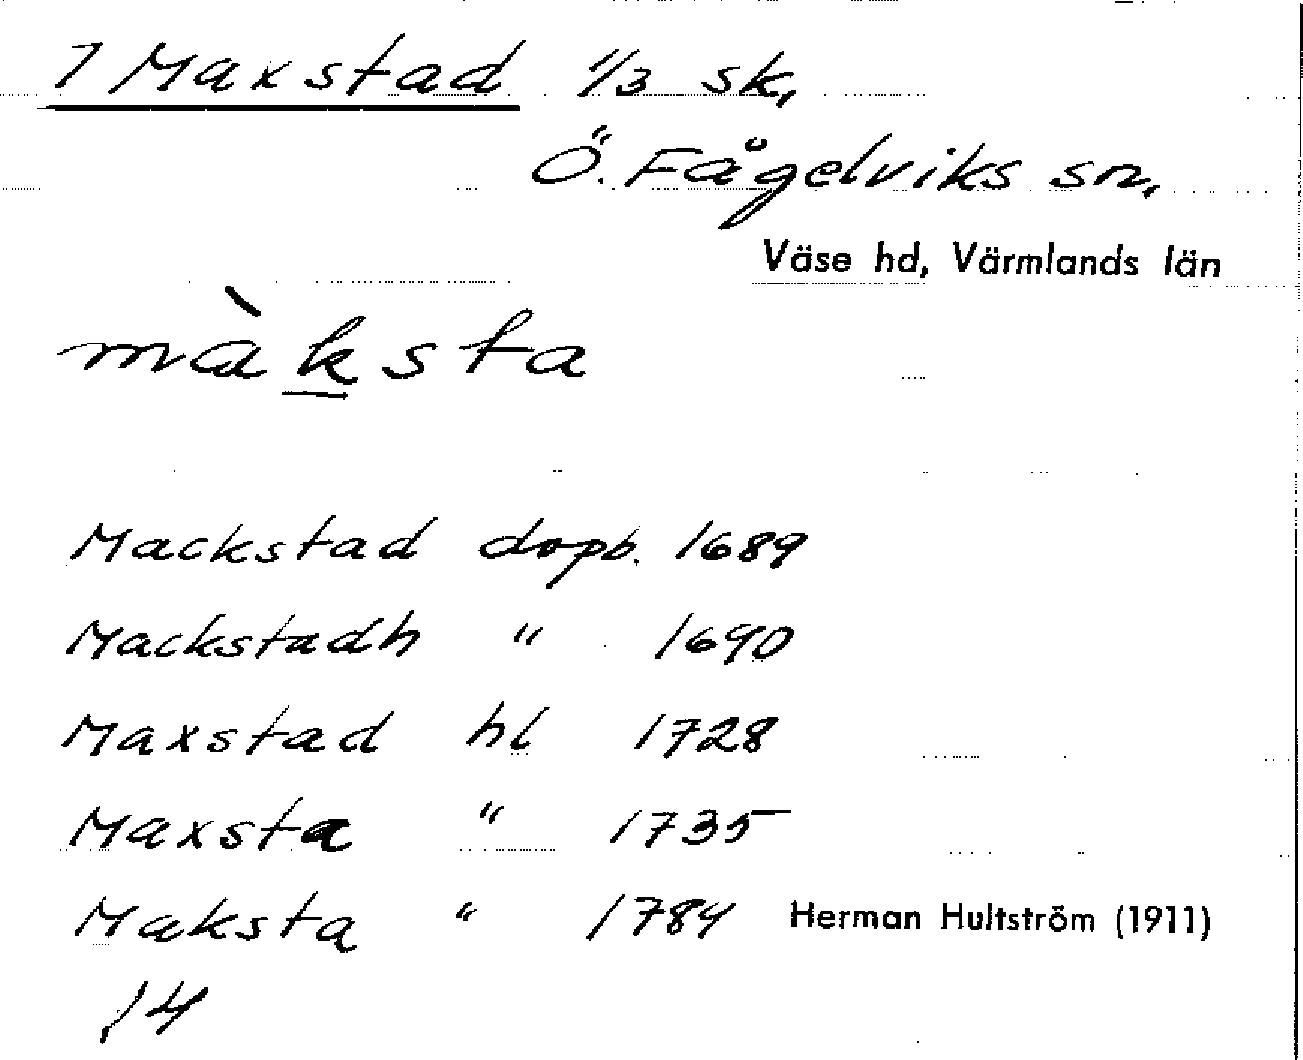 1 Maxstad 1/3 sk,
Ö. Fågelviks sn,
Väse hd, Värmlands län
màksta
Mackstad dopb. 1689
Mackstadh " 1690
Maxstad hl 1728
Maxsta " 1735
Maksta " 1784 Herman Hultström (1911)
14